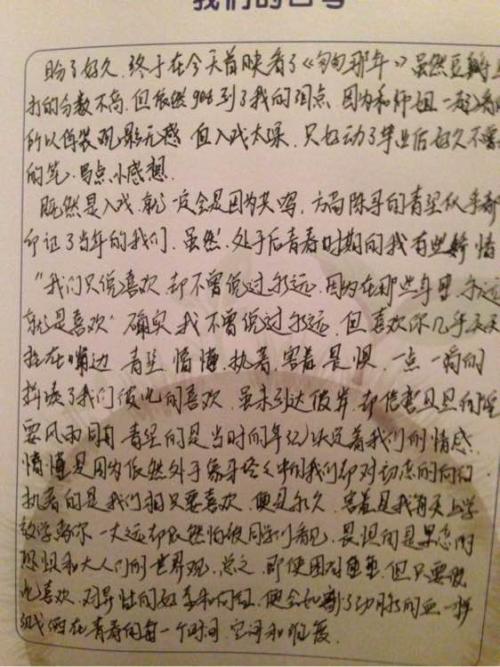 我们的
盼了好久,终于在今天首映看了《匆匆那年》虽然豆瓣
打的分数不高,但依然 get到了我的泪点,因为和师姐一起看
所以假装观影无感 但入戏太深,只好动了毕业后好久不
的笔,写点小感想.
既然是入戏,就一定会是因为 吗,方茴陈寻的青涩似乎都
印证了当年的我们,虽然,处于后青春时期的我有些矫情
“我们只说喜欢,却不曾说过永远,因为在那些年里,永远
就是喜欢”确实,我不曾说过永远,但喜欢你几乎天天
挂在嘴边 青涩,懵懂,执着,害羞,畏惧,一点一滴的
拼凑了我们彼此的喜欢,虽未到达彼岸,却信誓旦旦的
要风雨同舟 青涩的是当时的年纪决定着我们的情感,
懵懂是因为依然处于象牙塔之中的我们却对动态的向往
执着的是我们相 只要喜欢,便是永久,害羞是我每天上学
放学离你一大远却依然怕被同学们看见,畏惧的是 的
和大人们的世界观,总之,即使困难重重,但只要
喜欢,对异性的好奇和向往,便会如 了动脉的血一样
在青春的每一个时间,空间和 度.